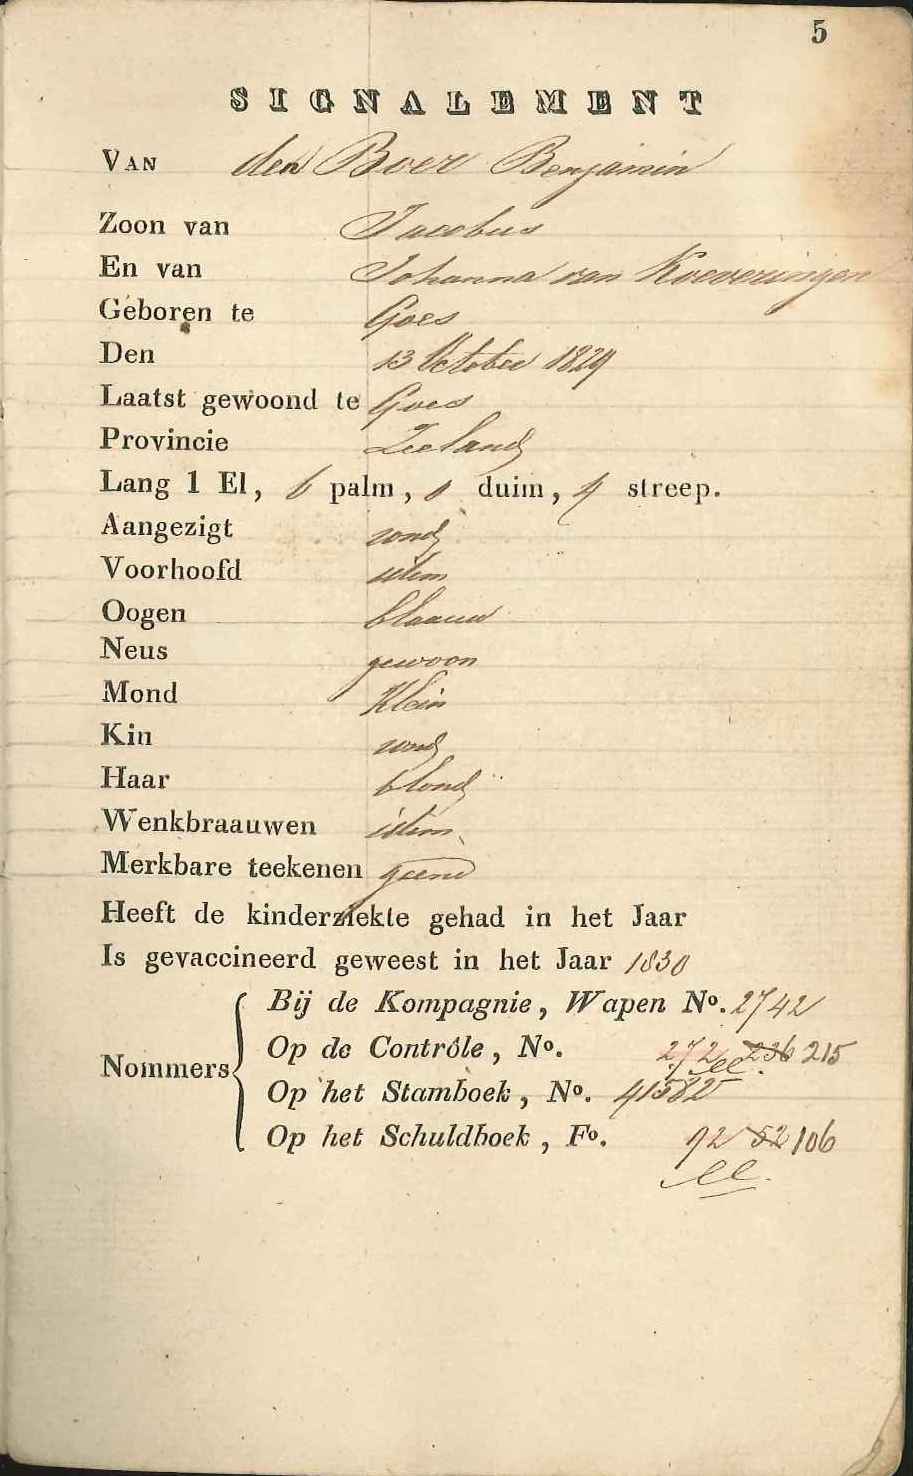 5
SIGNALEMENT
VAN den Boer Benjamin
Zoon van Jacobus
En van Johanna van Koeveringen
Geboren te Goes
Den 13 October 1829
Laatst gewoond te Goes
Provincie Zeeland
Lang 1 El, 6 palm, 0 duim, 4 streep.
Aangezigt rond
Voorhoofd idem
Oogen blaauw
Neus gewoon
Mond Klein
Kin rond
Haar blond
Wenkbraauwen idem
Merkbare teekenen geene
Heeft de kinderziekte gehad in het Jaar
Is gevaccineerd geweest in het Jaar 1830
Bij de Kompagnie, Wapen No. 2742
Op de Contrôle, No. 272 236 215
Nommers
Op het Stamboek, No. 41582
Op het Schuldboek, Fo. 92 52 106